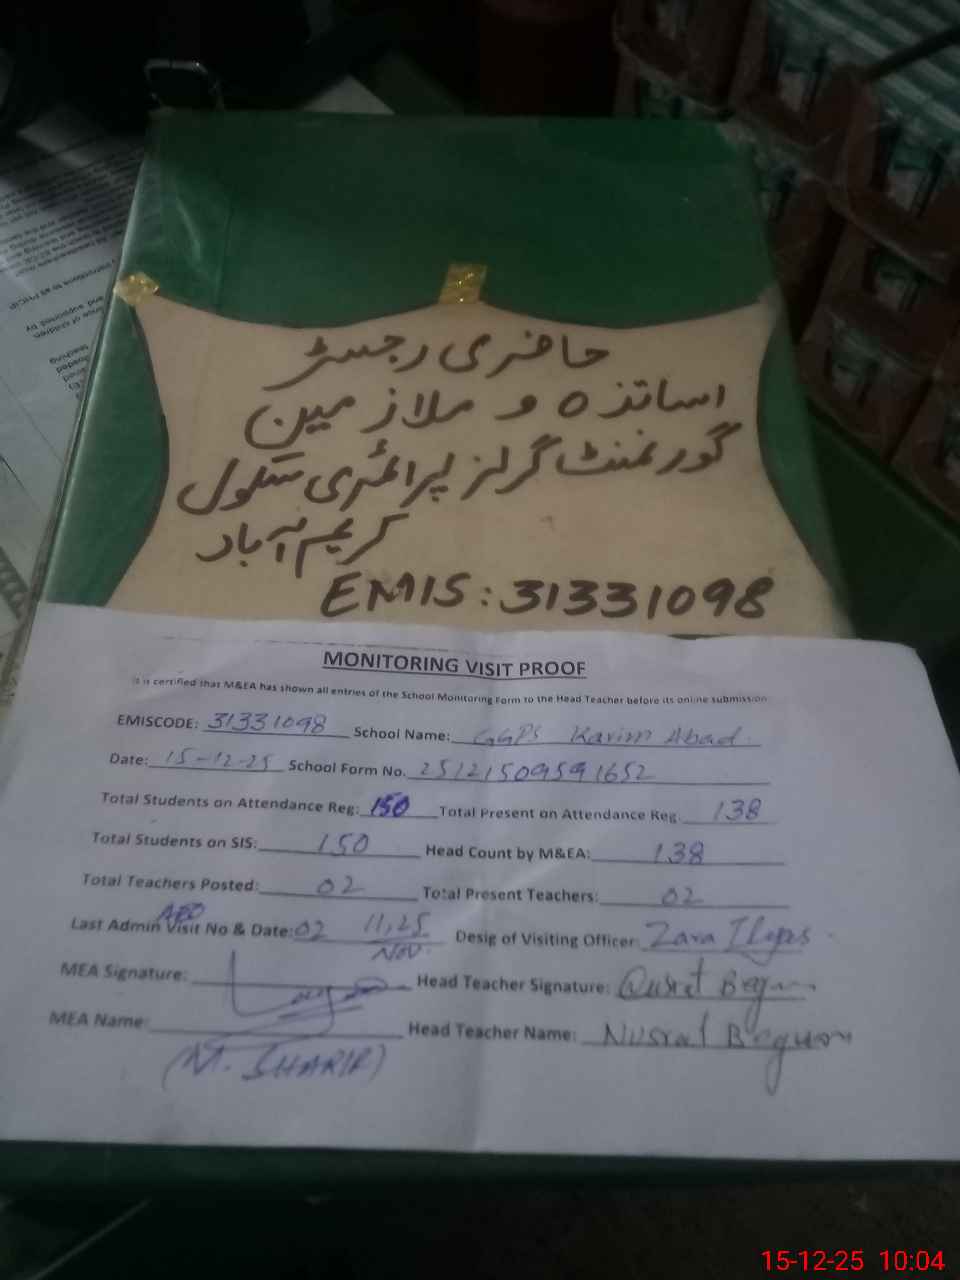 حاضری رجسٹر
اساتذہ و ملازمین
گورنمنٹ گرلز پرائمری سکول
کریم آباد
EMIS: 31331098
MONITORING VISIT PROOF
It is certified that M&EA has shown all entries of the School Monitoring Form to the Head Teacher before its online submission
EMISCODE: 31331098 School Name: GGPS Karim Abad.
Date: 15-12-25 School Form No. 25121509591652
Total Students on Attendance Reg: 150 Total Present on Attendance Reg. 138
Total Students on SIS: 150 Head Count by M&EA: 138
Total Teachers Posted: 02 Total Present Teachers: 02
AEO
Last Admin Visit No & Date: 02 11,25 Desig of Visiting Officer Zara Ilyas
Nov.
MEA Signature: Head Teacher Signature: Qusrat Begum
MEA Name: Head Teacher Name: Nusrat Begum
(M. SHARIF)
15-12-25 10:04